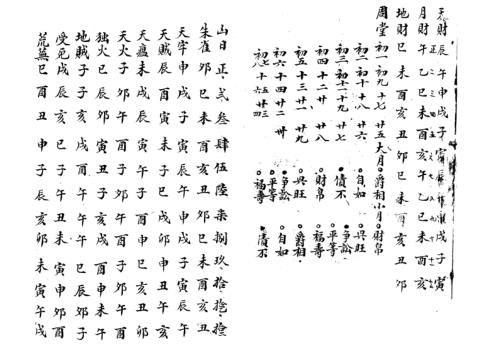 天財辰午申戌子寅辰午申戌子寅
月財午乙巳未酉亥午乙巳未酉亥
地財巳未酉亥丑卯巳未酉亥丑卯
周堂 初一初九十七廿五大月 爵相小月 財帛
初二初十十八廿六 自如 興旺
初三十一十九廿七 債不 爭訟
初四十二廿廿八 財帛 平等
初五十三廿一廿九 興旺 福壽
初六十四廿二卅 爭訟 爵相
初七十五廿三 平等 自如
初八十六廿四 福壽 債不
凶日正貳叁肆伍陸柒捌玖拾拾拾
朱雀卯巳未酉亥丑卯巳未酉亥丑
天牢申戌子寅辰午申戌子寅辰午
天賊辰酉寅未子巳戌卯申丑午亥
天瘟未戌辰寅午子酉申巳亥丑卯
天火子卯午酉子卯午酉子卯午酉
独火巳辰卯寅丑子亥戌酉申未午
地賊子子亥戌酉午午午巳辰卯子
受死戌辰亥巳子午丑未寅申卯酉
荒蕪巳酉丑申子辰亥卯未寅午戌